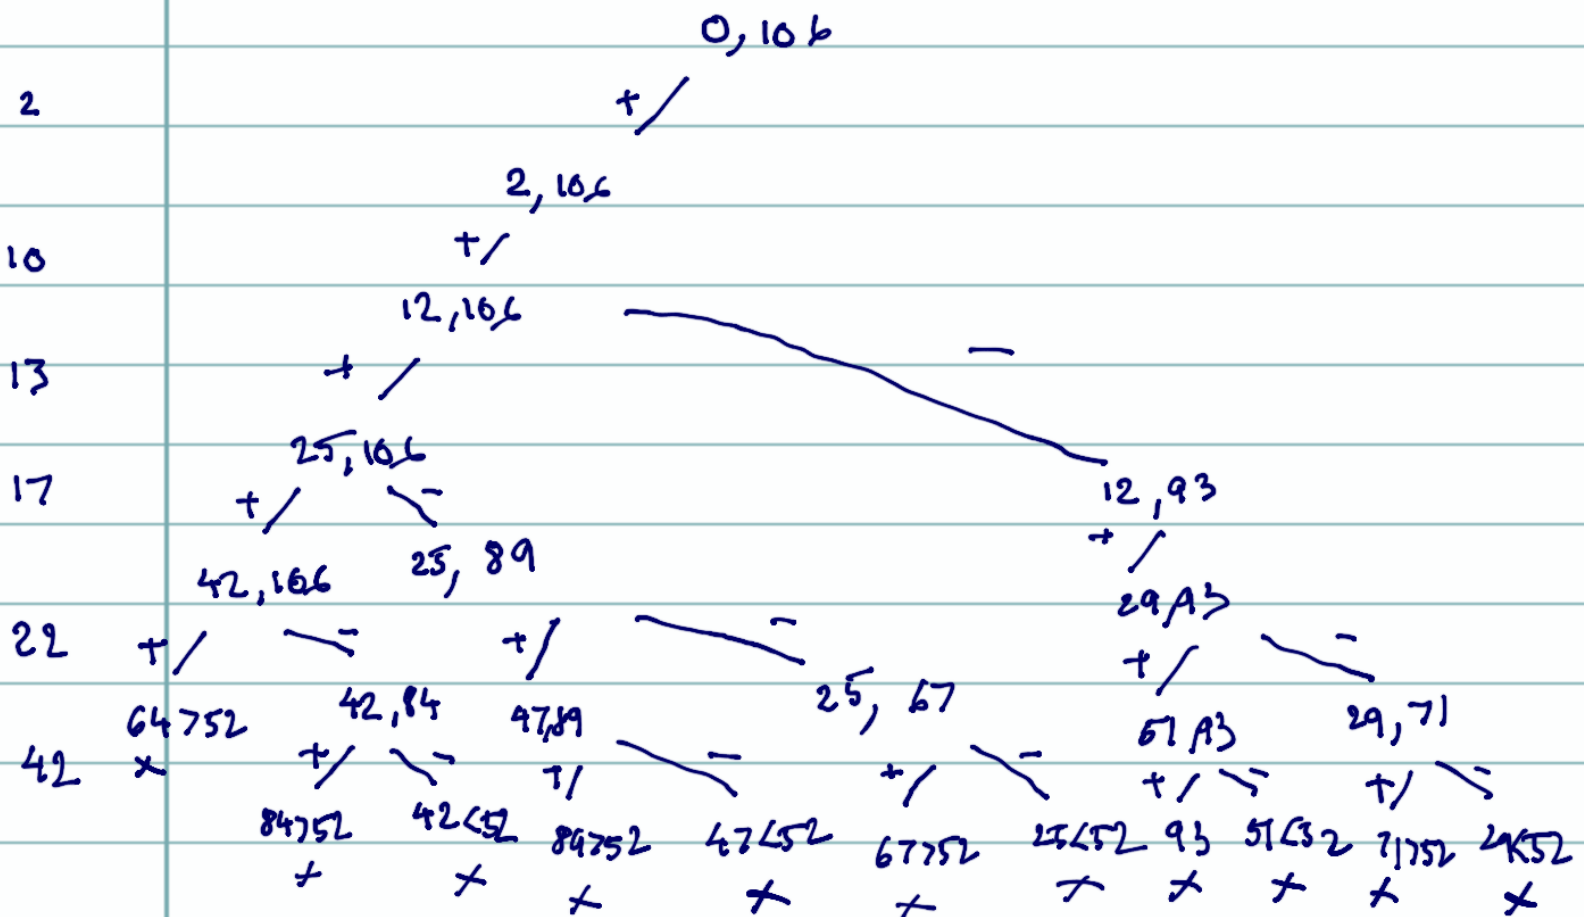 0, 106
2 +
2, 106
10 +
12, 106
13 + -
25, 106
17 + - 12, 93
+
42, 106 25, 89
29, 93
22 + - + - + -
64 > 52 42, 84 47, 89 25, 67 51, 93 29, 71
42 x + - + - + - + - + -
84 > 52 42 < 52 89 > 52 47 < 52 67 > 52 25 < 52 93 51 < 52 71 > 52 29 < 52
x x x x x x x x x x